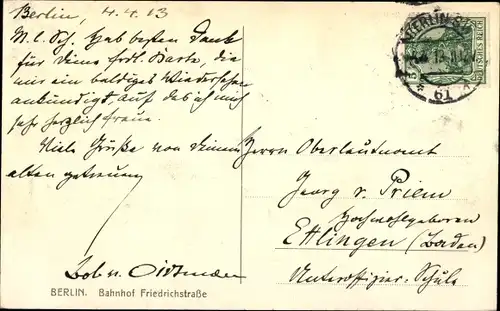 Berlin, 4.4.13
M. l. Sch. Hab besten Dank
für Deine frdl. Karte, die
mir ein baldiges Wiedersehen
ankündigt, auf das ich mich
sehr herzlich freue.
Viele Grüße von Deinem
alten getreuen
Bob v.
BERLIN. Bahnhof Friedrichstraße
BERLIN S.W.
61
DEUTSCHES REICH
5
Herrn Oberleutnant
Georg v. Priem
Hochwohlgeboren
Ettlingen (Baden)
Unteroffizier-Schule